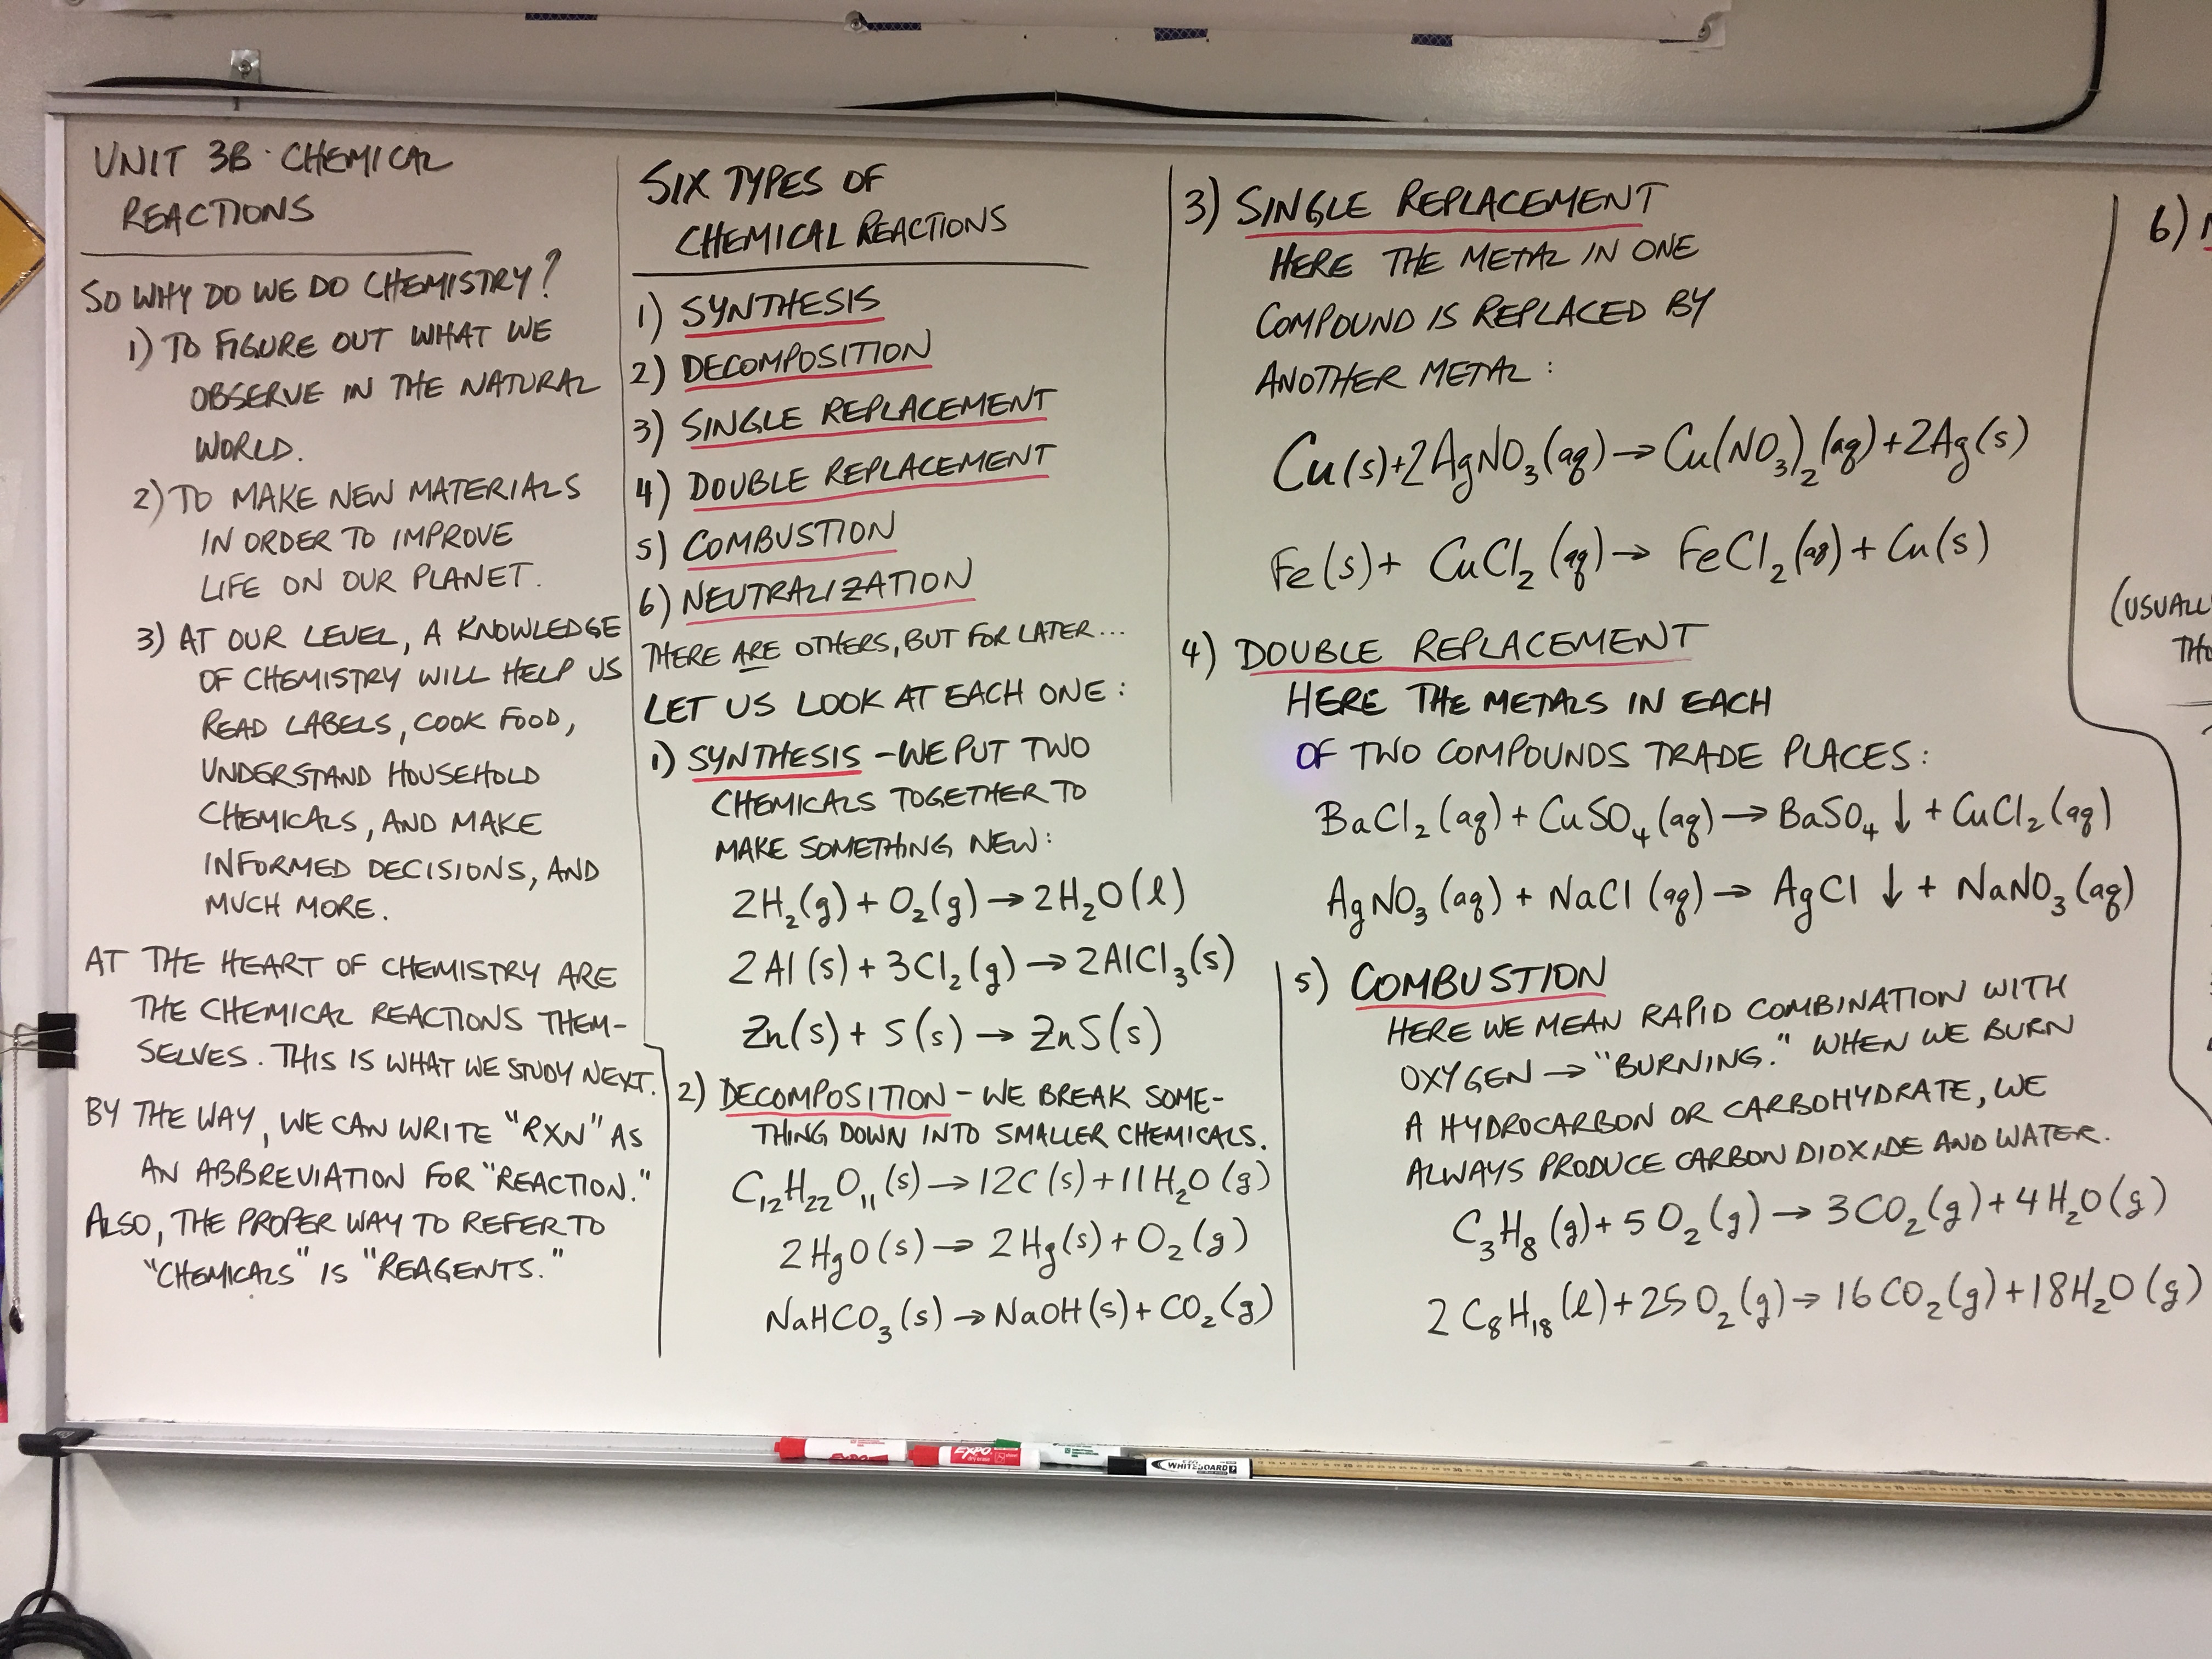 UNIT 3B · CHEMICAL
REACTIONS
SO WHY DO WE DO CHEMISTRY?
1) TO FIGURE OUT WHAT WE
OBSERVE IN THE NATURAL
WORLD.
2) TO MAKE NEW MATERIALS
IN ORDER TO IMPROVE
LIFE ON OUR PLANET.
3) AT OUR LEVEL, A KNOWLEDGE
OF CHEMISTRY WILL HELP US
READ LABELS, COOK FOOD,
UNDERSTAND HOUSEHOLD
CHEMICALS, AND MAKE
INFORMED DECISIONS, AND
MUCH MORE.
AT THE HEART OF CHEMISTRY ARE
THE CHEMICAL REACTIONS THEM-
SELVES. THIS IS WHAT WE STUDY NEXT.
BY THE WAY, WE CAN WRITE "RXN" AS
AN ABBREVIATION FOR "REACTION."
ALSO, THE PROPER WAY TO REFER TO
"CHEMICALS" IS "REAGENTS."
SIX TYPES OF
CHEMICAL REACTIONS
1) SYNTHESIS
2) DECOMPOSITION
3) SINGLE REPLACEMENT
4) DOUBLE REPLACEMENT
5) COMBUSTION
6) NEUTRALIZATION
THERE ARE OTHERS, BUT FOR LATER...
LET US LOOK AT EACH ONE:
1) SYNTHESIS - WE PUT TWO
CHEMICALS TOGETHER TO
MAKE SOMETHING NEW:
2H₂(g) + O₂(g) → 2H₂O(l)
2Al(s) + 3Cl₂(g) → 2AlCl₃(s)
Zn(s) + S(s) → ZnS(s)
2) DECOMPOSITION - WE BREAK SOME-
THING DOWN INTO SMALLER CHEMICALS.
C₁₂H₂₂O₁₁(s) → 12C(s) + 11H₂O(g)
2HgO(s) → 2Hg(s) + O₂(g)
NaHCO₃(s) → NaOH(s) + CO₂(g)
3) SINGLE REPLACEMENT
HERE THE METAL IN ONE
COMPOUND IS REPLACED BY
ANOTHER METAL:
Cu(s) + 2AgNO₃(aq) → Cu(NO₃)₂(aq) + 2Ag(s)
Fe(s) + CuCl₂(aq) → FeCl₂(aq) + Cu(s)
4) DOUBLE REPLACEMENT
HERE THE METALS IN EACH
OF TWO COMPOUNDS TRADE PLACES:
BaCl₂(aq) + CuSO₄(aq) → BaSO₄ ↓ + CuCl₂(aq)
AgNO₃(aq) + NaCl(aq) → AgCl ↓ + NaNO₃(aq)
5) COMBUSTION
HERE WE MEAN RAPID COMBINATION WITH
OXYGEN → "BURNING." WHEN WE BURN
A HYDROCARBON OR CARBOHYDRATE, WE
ALWAYS PRODUCE CARBON DIOXIDE AND WATER.
C₃H₈(g) + 5O₂(g) → 3CO₂(g) + 4H₂O(g)
2C₈H₁₈(l) + 25O₂(g) → 16CO₂(g) + 18H₂O(g)
6)
(USUALL
EXPO
EXPO
WHITEBOARD